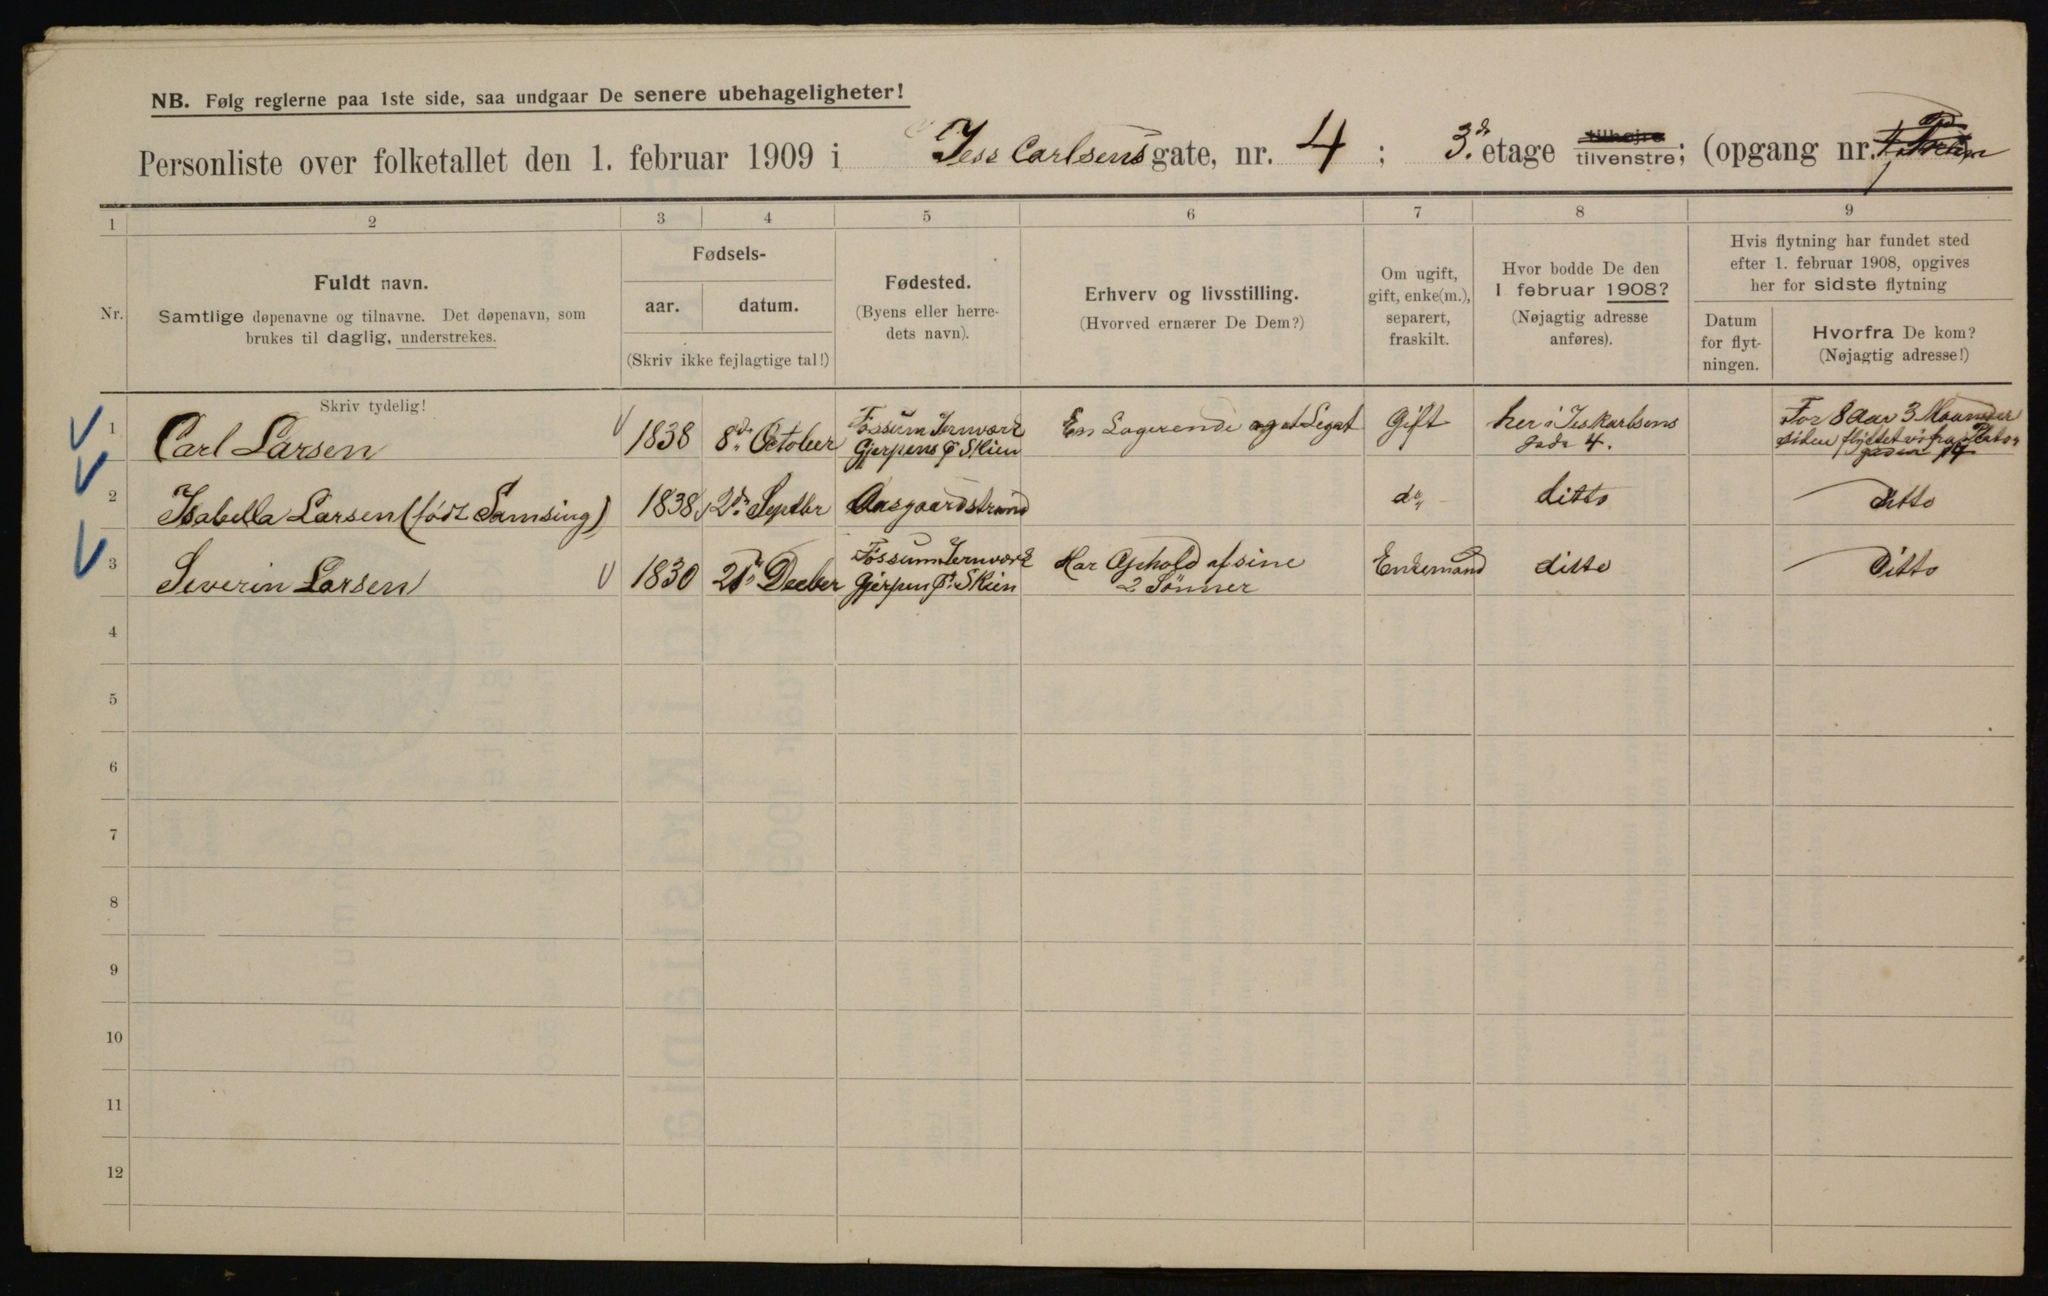 NB. Følg reglerne paa 1ste side, saa undgaar De senere ubehageligheter!
Personliste over folketallet den 1. februar 1909 i Jess Carlsens gate, nr. 4 ; 3de etage tilhøjre tilvenstre; (opgang nr.
1 2 3 4 5 6 7 8 9
Nr.
Fuldt navn.
Samtlige døpenavne og tilnavne. Det døpenavn, som
brukes til daglig, understrekes.
Skriv tydelig!
Fødsels-
aar. datum.
(Skriv ikke fejlagtige tal!)
Fødested.
(Byens eller herre-
dets navn).
Erhverv og livsstilling.
(Hvorved ernærer De Dem?)
Om ugift,
gift, enke(m.),
separert,
fraskilt.
Hvor bodde De den
1 februar 1908?
(Nøjagtig adresse
anføres).
Hvis flytning har fundet sted
efter 1. februar 1908, opgives
her for sidste flytning
Datum
for flyt-
ningen.
Hvorfra De kom?
(Nøjagtig adresse!)
1 Carl Larsen 1838 8de October
Fossum Jernværk
Gjerpens Skien
En Logerende og et Legat
Gift
her i Jeskarlsens
gade 4.
For 8 Aar 3 Maaneder
siden flyttet vi fra
2 Isabella Larsen (født Samsing) 1838 2de Septbr Aasgaardstrand do ditto Ditto
3 Severin Larsen 1830 Deeber
Fossum Jernværk
Gjerpen Skien
Har Ophold af sine
2 Sønner
Enkemand ditto Ditto
4
5
6
7
8
9
10
11
12